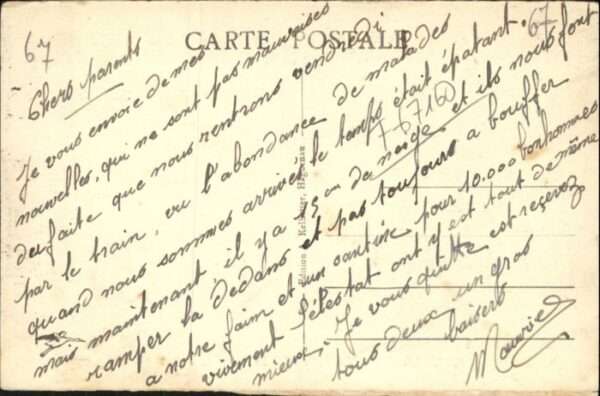 67
67
CARTE POSTALE
Chers parents
Je vous envoie de mes
nouvelles, qui ne sont pas mauvaises
du faite que nous rentrons vendredi
par le train, vu l'abondance de malades
quand nous sommes arrivés le temps était épatant.
mais maintenant il y a 15 cm de neige et ils nous font
ramper la dedans et pas toujours a bouffer
a notre faim et une cantine pour 10.000 bonhommes
vivement Sélestat ont y est tout de même
mieux. Je vous quitte est reçevez
tous deux un gros
baisers
Maurice
Édition Keller, Haguenau